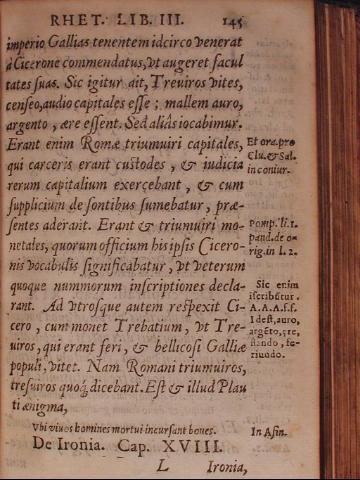 RHET. LIB. III. 145
imperio Gallias tenentem idcirco venerat
à Cicerone commendatus, vt augeret facul
tates suas. Sic igitur ait, Treuiros vites,
censeo, audio capitales esse; mallem auro,
argento, ære essent. Sed aliàs iocabimur.
Erant enim Romæ triumuiri capitales,
qui carceris erant custodes, & iudicia
rerum capitalium exercebant, & cum
supplicium de sontibus sumebatur, præ-
sentes aderant. Erant & triumuiri mo-
netales, quorum officium his ipsis Cicero-
nis vocabulis significabatur, vt veterum
quoque nummorum inscriptiones decla-
rant. Ad vtrosque autem respexit Ci-
cero, cum monet Trebatium, vt Tre-
uiros, qui erant feri, & bellicosi Galliæ
populi, vitet. Nam Romani triumuiros,
tresuiros quoq; dicebant. Est & illud Plau
ti ænigma,
Vbi viuos homines mortui incursant boues.
De Ironia. Cap. XVIII.
L Ironia,
Et ora. pro
Clu. & Sal.
in coniur.
Pomp. li. 1.
pand. de o-
rig. in l. 2.
Sic enim
iscribūtur.
A. A. A. f. f.
I dest, auro,
argēto, ęre,
flando, fe-
riundo.
In Asin.